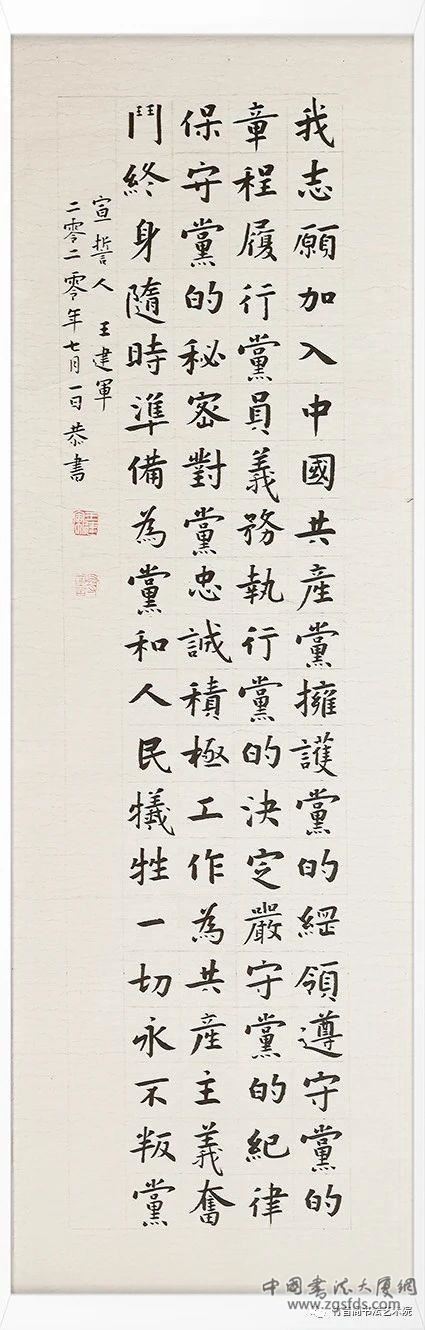 我志願加入中國共産黨擁護黨的綱領遵守黨的
章程履行黨員義務執行黨的決定嚴守黨的紀律
保守黨的秘密對黨忠誠積極工作為共産主義奮
鬥終身隨時準備為黨和人民犧牲一切永不叛黨
宣誓人 王建軍
二零二零年七月一日恭書
中國書法大廈網
www.zgsfds.com
书法艺术院